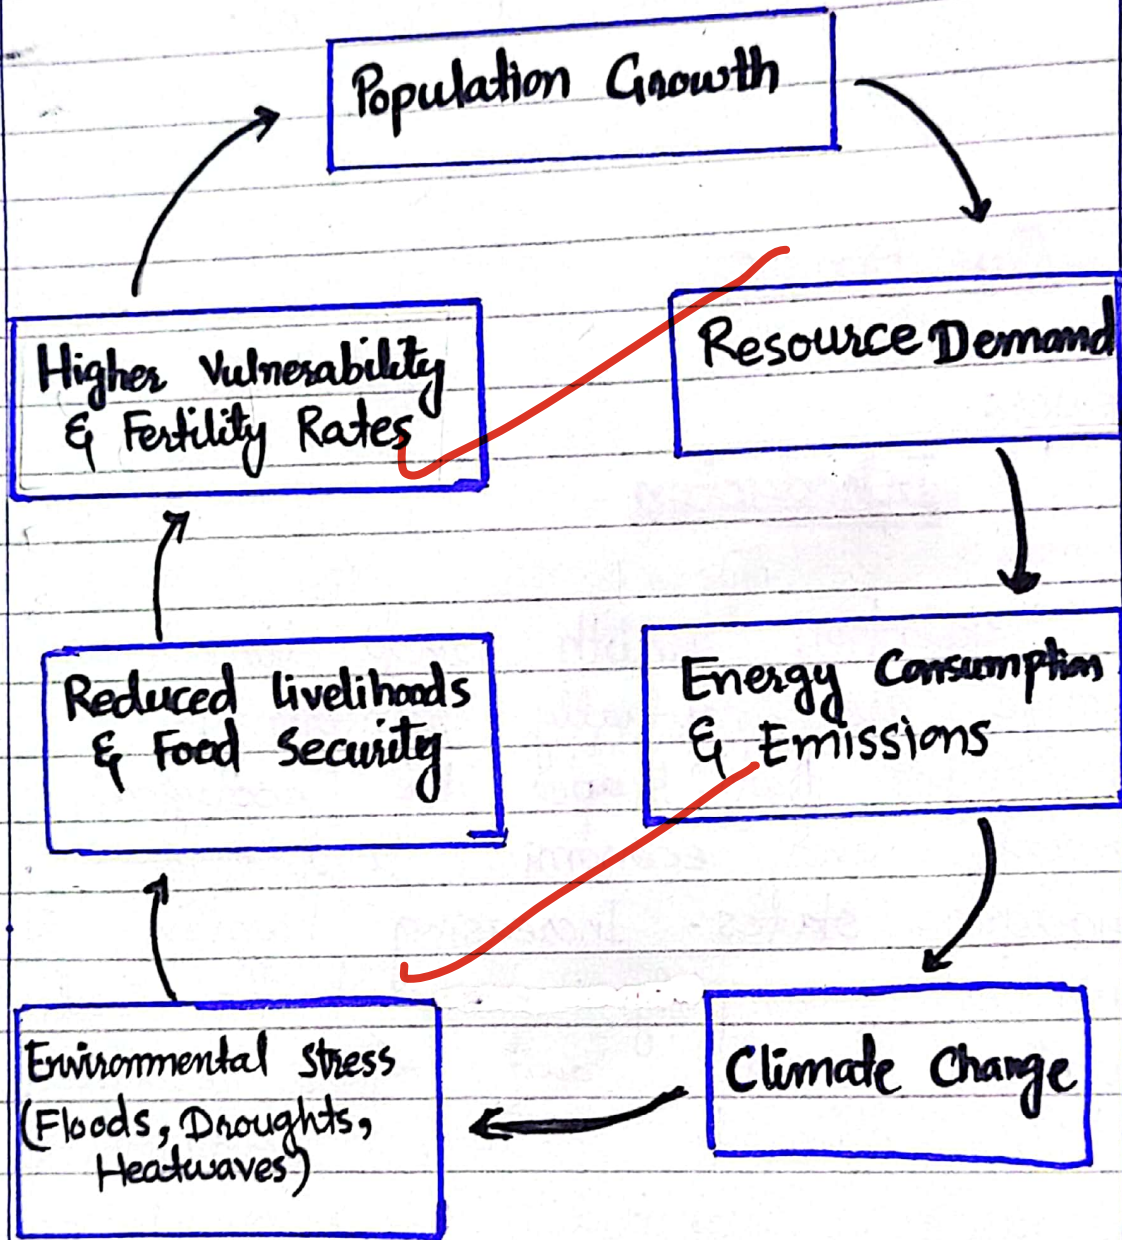 Population Growth
Resource Demand
Energy Consumption
& Emissions
Climate Change
Environmental Stress
(Floods, Droughts,
Heatwaves)
Reduced livelihoods
& Food Security
Higher Vulnerability
& Fertility Rates